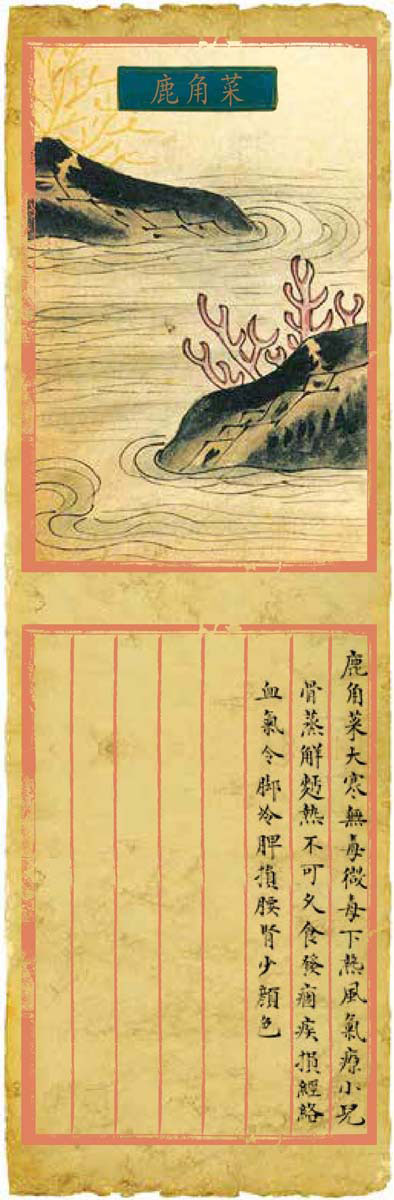 鹿角菜
鹿角菜大寒無毒微毒下熱風氣療小兒
骨蒸解麵熱不可久食發痼疾損經絡
血氣令脚冷脾損腰腎少顏色